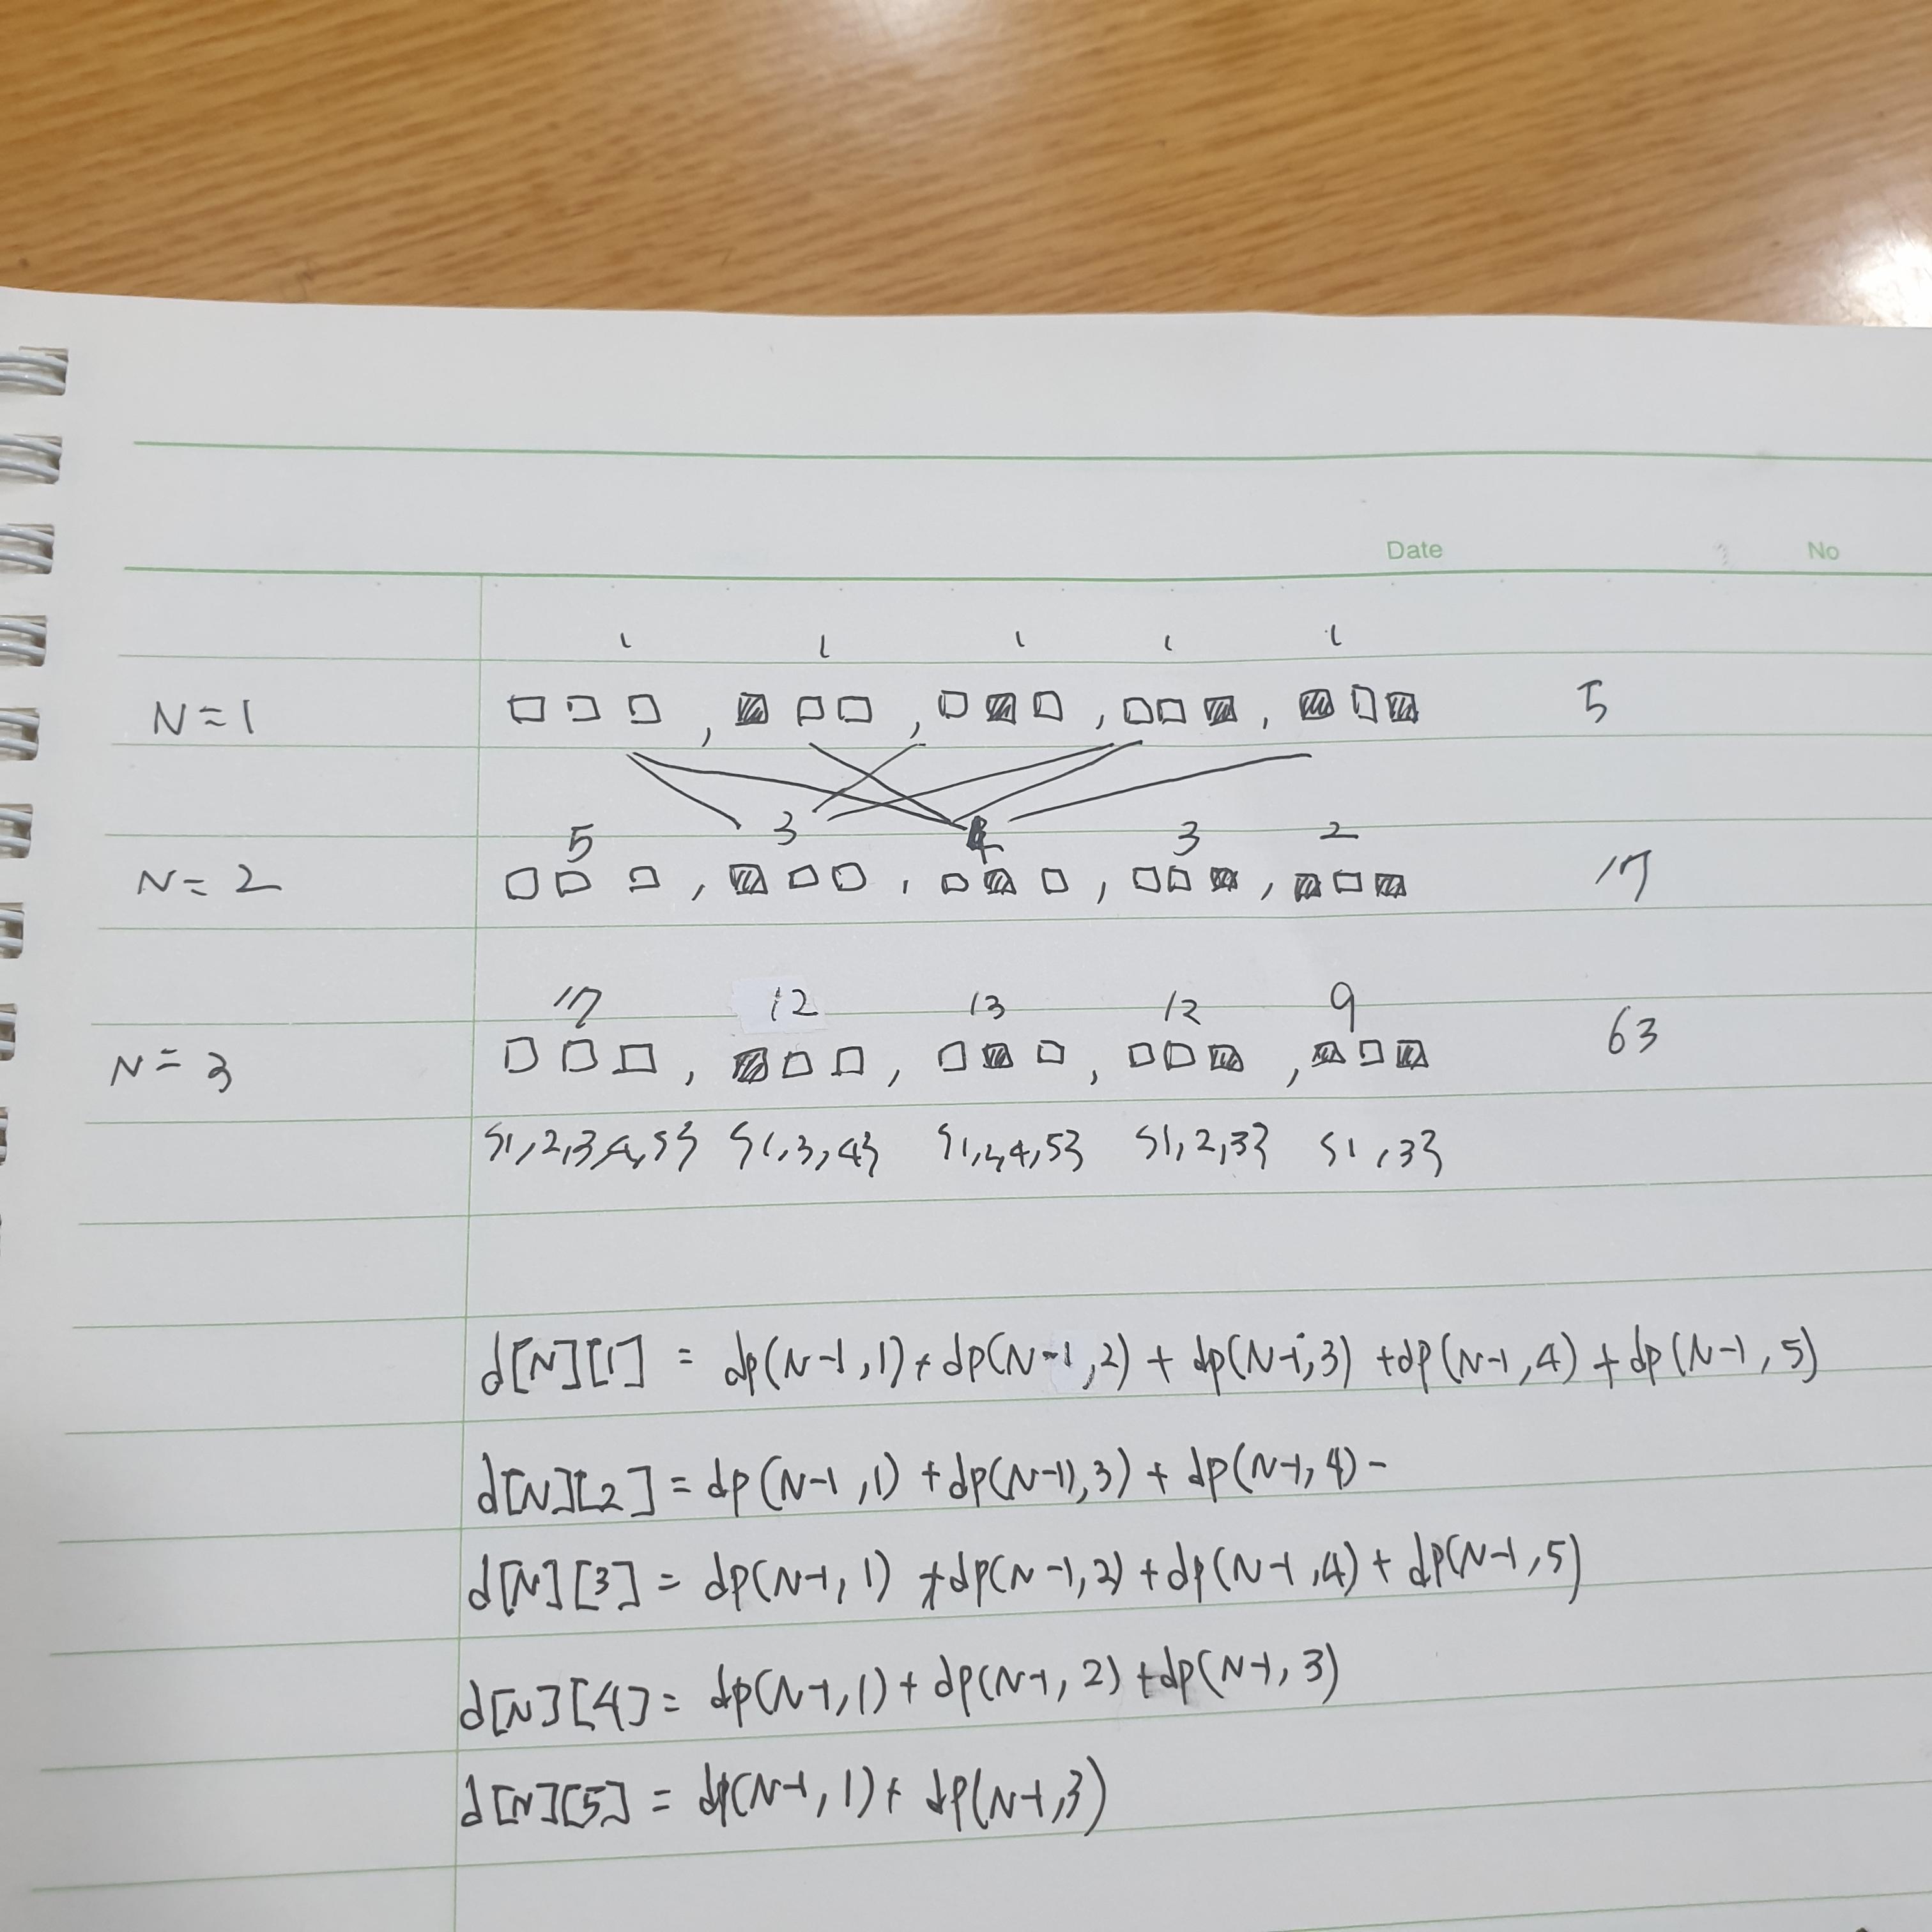 Date No
1 1 1 1 1
N=1 , , , , 5
5 3 4 3 2
N=2 , , , , 17
17 12 13 12 9
N=3 , , , , 63
{1,2,3,4,5} {1,3,4} {1,2,4,5} {1,2,3} {1,3}
d[N][1] = dp(N-1,1)+dp(N-1,2)+dp(N-1,3)+dp(N-1,4)+dp(N-1,5)
d[N][2] = dp(N-1,1)+dp(N-1),3)+dp(N-1,4)-
d[N][3] = dp(N-1,1)+dp(N-1,2)+dp(N-1,4)+dp(N-1,5)
d[N][4] = dp(N-1,1)+dp(N-1,2)+dp(N-1,3)
d[N][5] = dp(N-1,1)+dp(N-1,3)